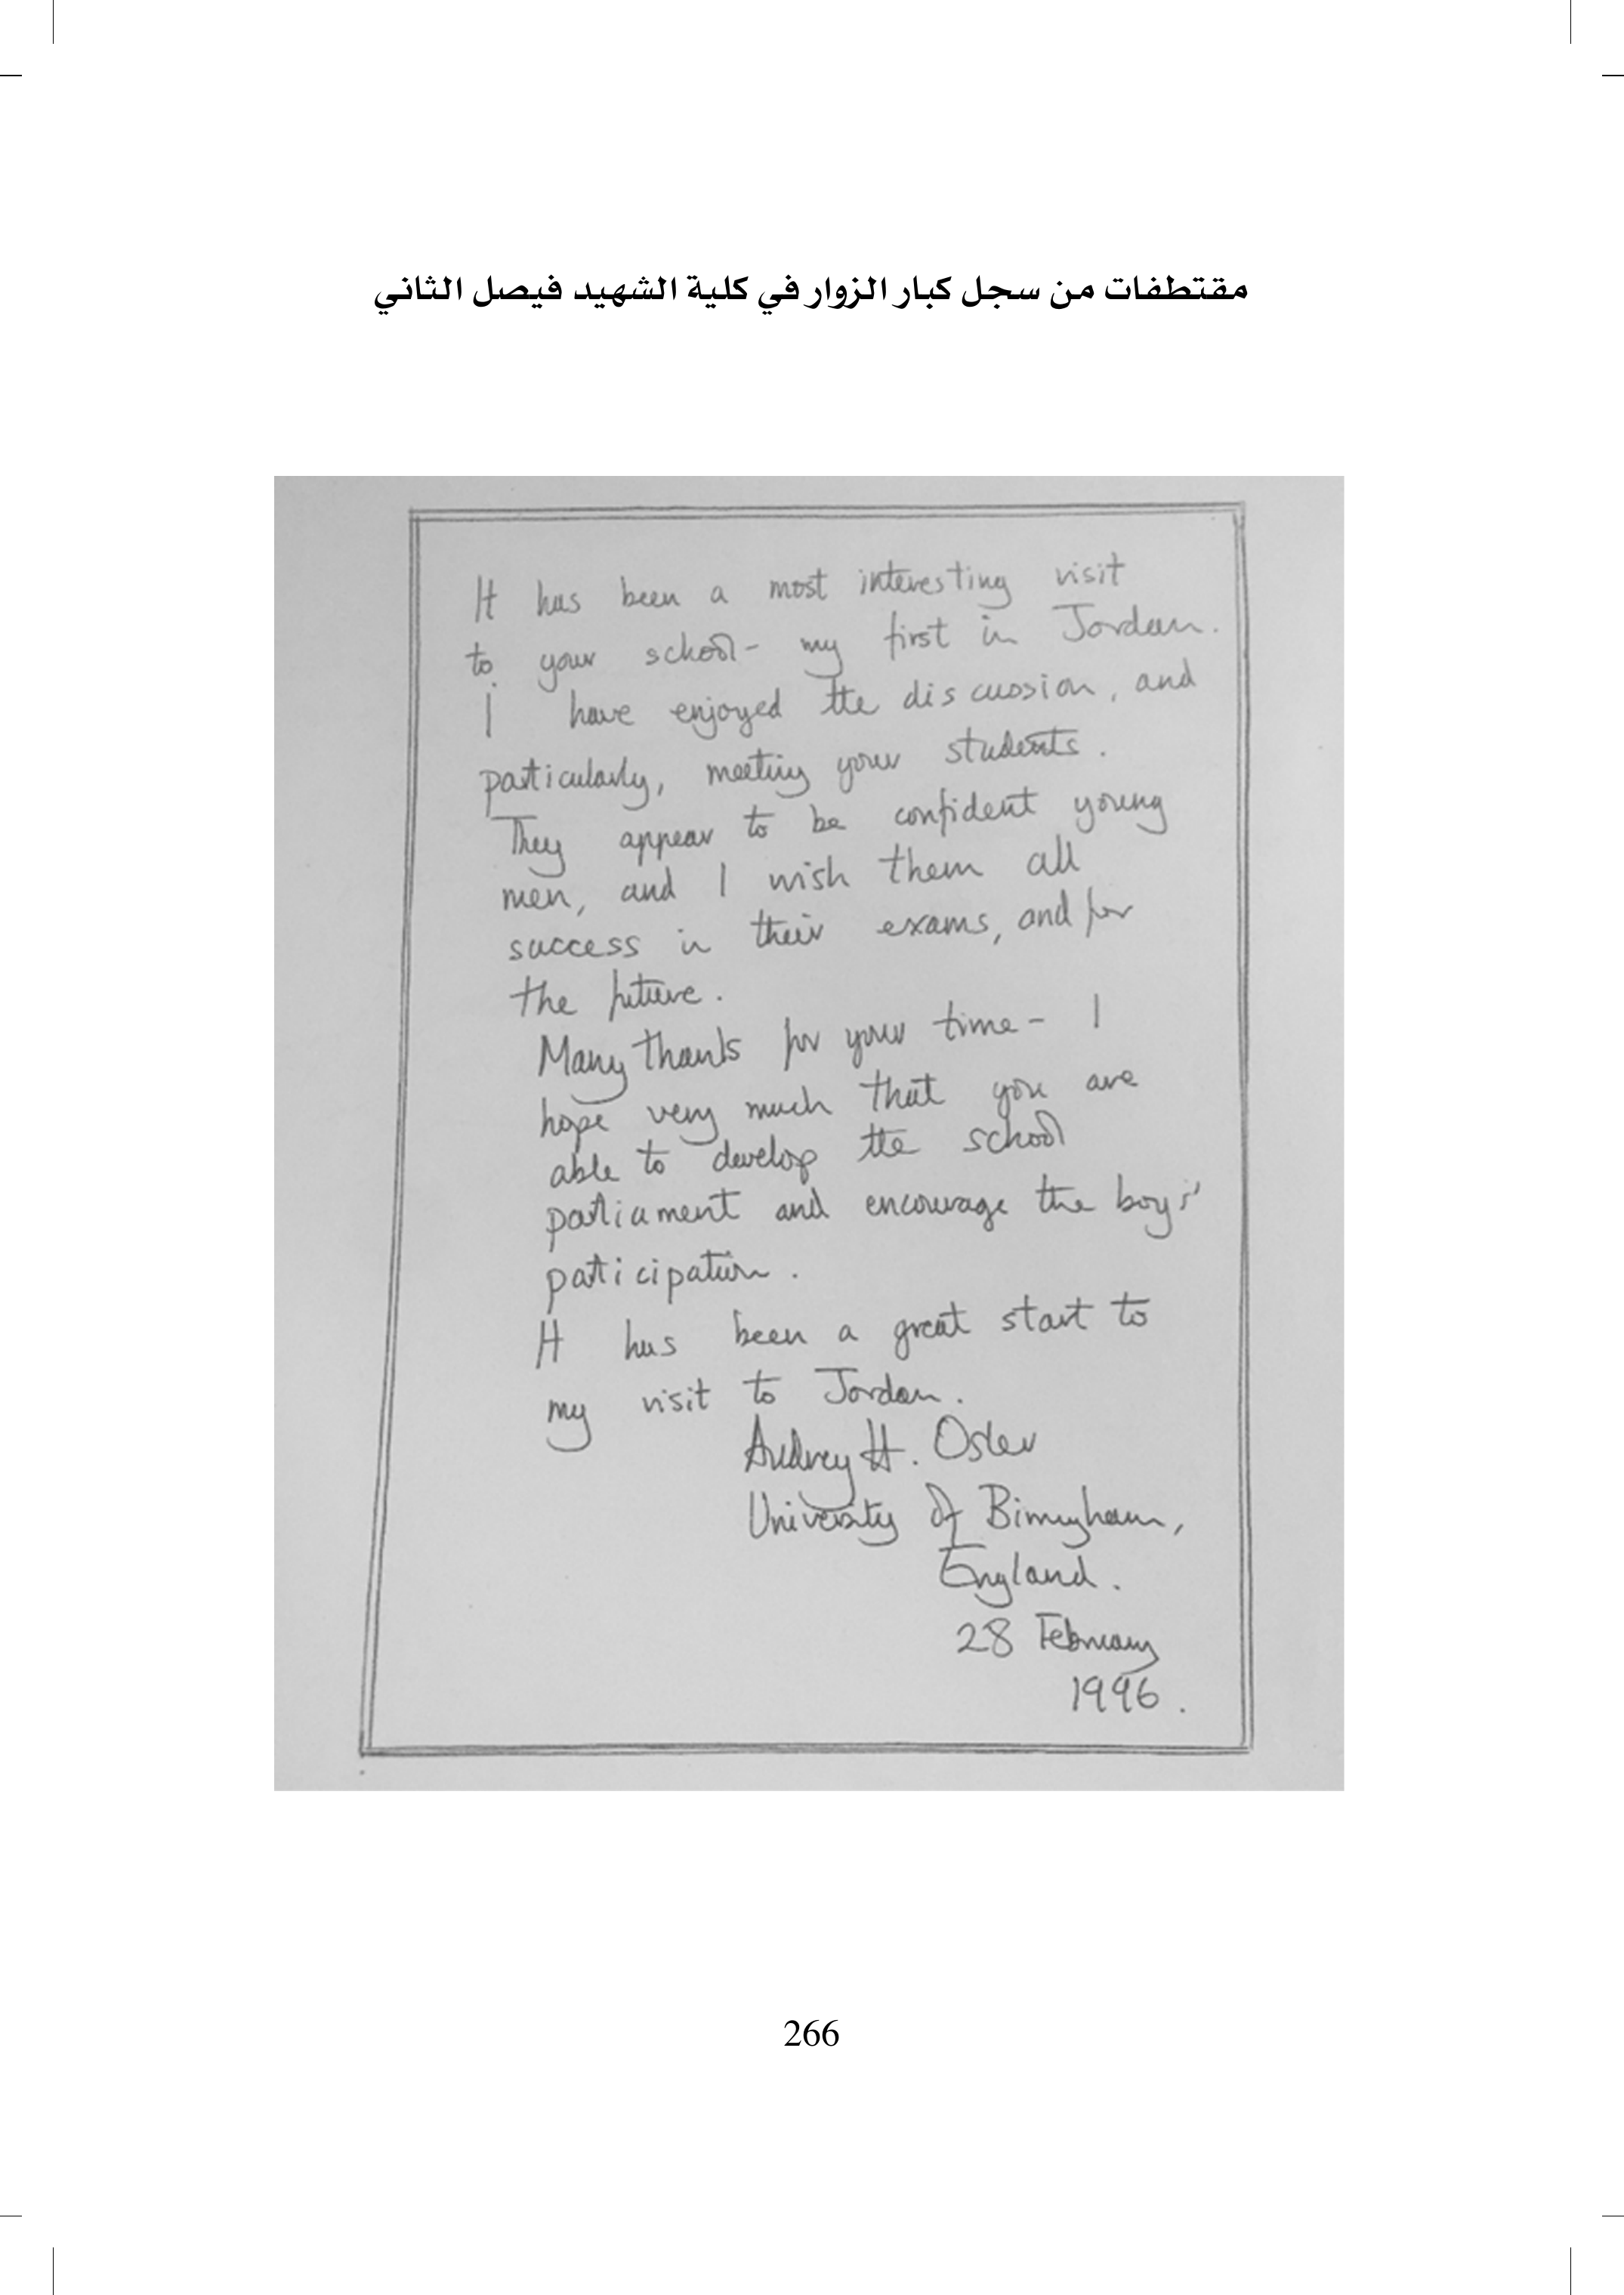 مقتطفات من سجل كبار الزوار في كلية الشهيد فيصل الثاني
It has been a most interesting visit
to your school - my first in Jordan.
I have enjoyed the discussion, and
particularly, meeting your students.
They appear to be confident young
men, and I wish them all
success in their exams, and for
the future.
Many thanks for your time - I
hope very much that you are
able to develop the school
parliament and encourage the boys'
participation.
It has been a great start to
my visit to Jordan.
Audrey H. Osler
University of Birmingham,
England.
28 February
1996.
266